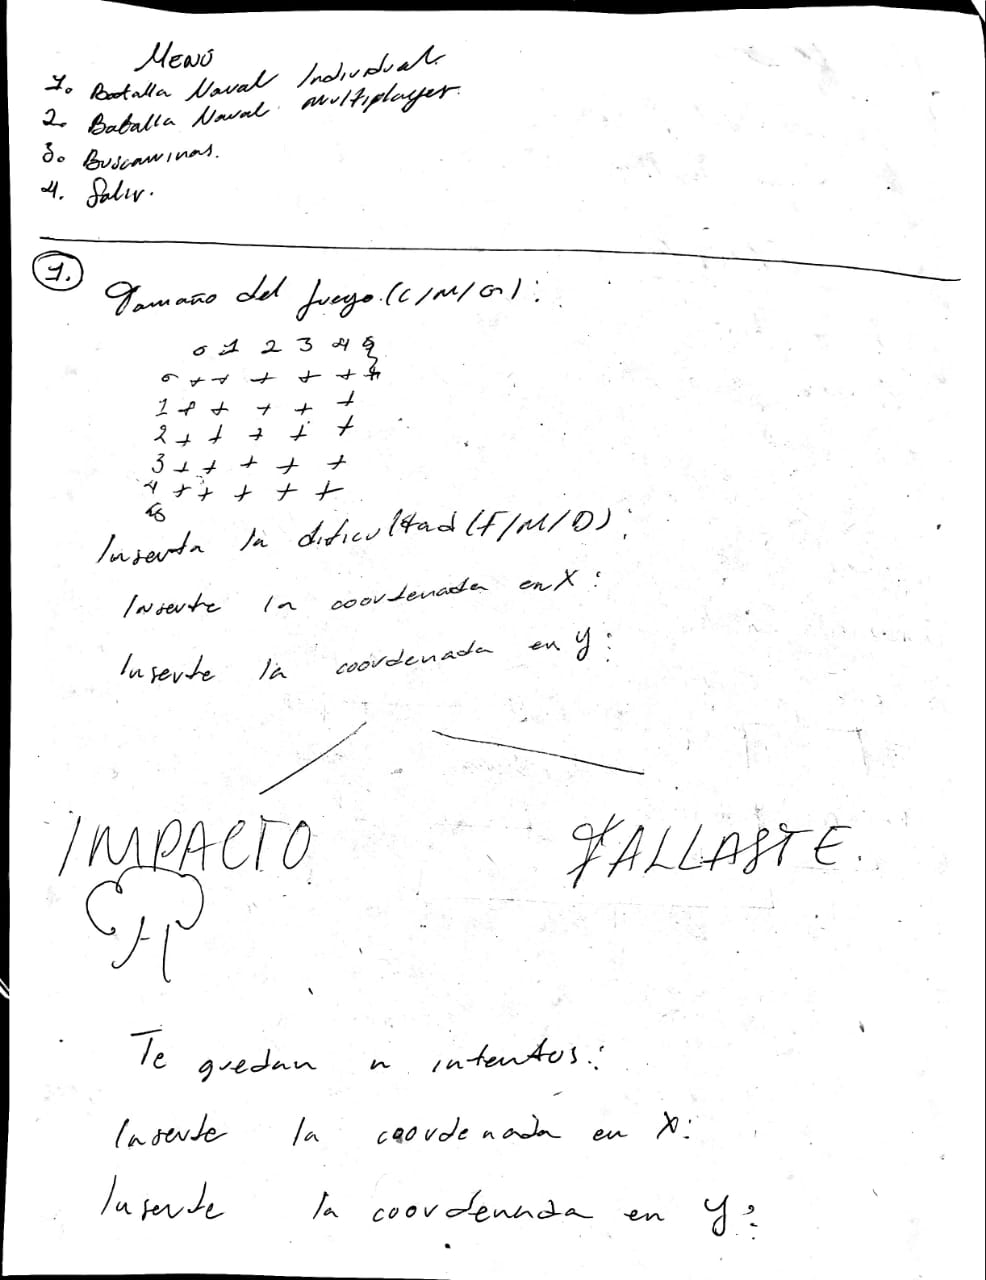 Menú
1. Batalla Naval Individual
2. Batalla Naval multiplayer.
3. Buscaminas.
4. Salir.
1.
Tamaño del juego.(C/M/G):
0 1 2 3 4 5
0 + + + + +
1 + + + + +
2 + + + + +
3 + + + + +
4 + + + + +
5
Inserta la dificultad (F/M/D):
Inserte la coordenada en X:
Inserte la coordenada en y:
IMPACTO FALLASTE.
Te quedan n intentos:
Inserte la coordenada en X:
Inserte la coordenada en y: